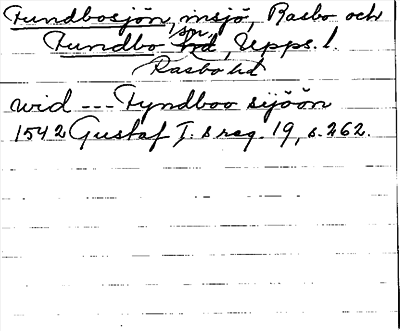 Fundbosjön, insjö, Rasbo och
Fundbo snr, Upps. l.
Rasbo hd
wid --- Fyndboo sijöön
1542 Gustaf I:s reg. 19, s. 262.